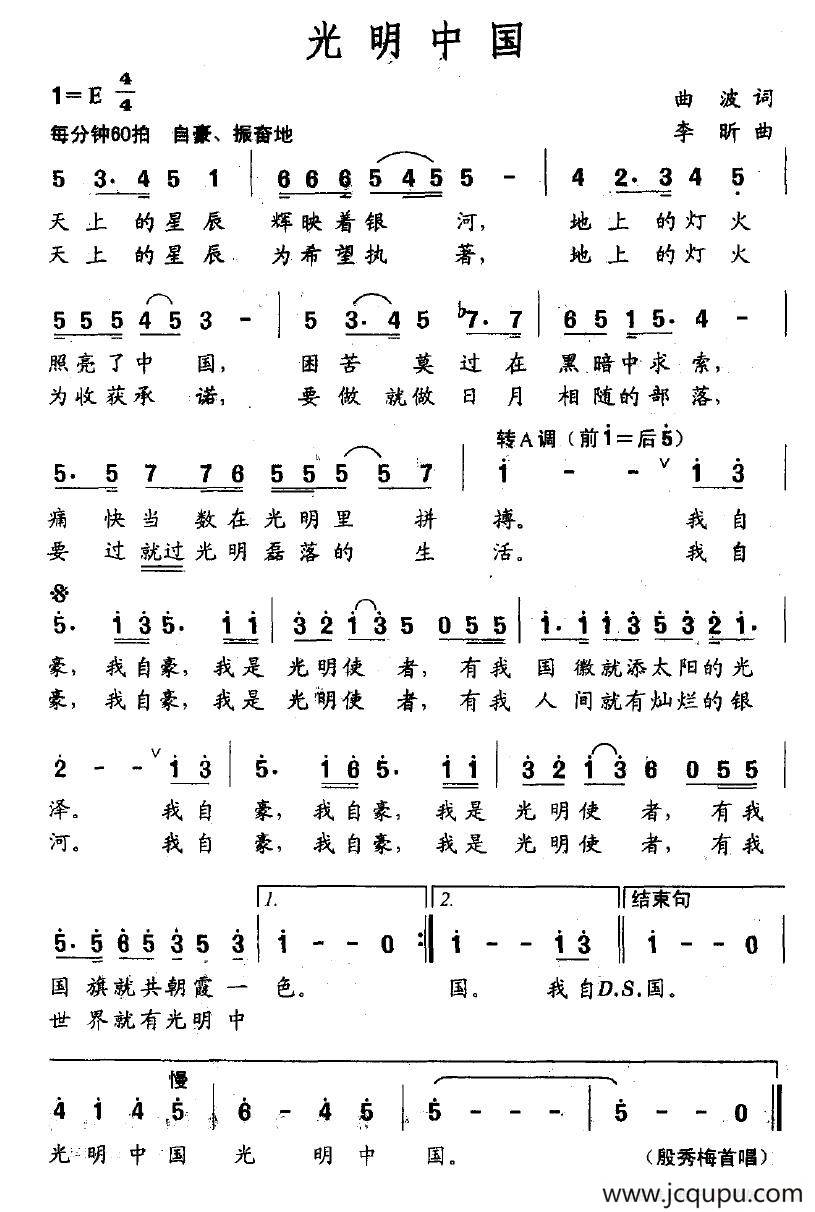 光明中国
1=E 4/4
曲波词
每分钟60拍 自豪、振奋地
李昕曲
5 3·4 5 1 | 6 6 6 5 4 5 5 - | 4 2·3 4 5 |
天上的星辰 辉映着银河, 地上的灯火
天上的星辰 为希望执著, 地上的灯火
5 5 5 4 5 3 - | 5 3·4 5 b7·7 | 6 5 1 5· 4 - |
照亮了中国, 困苦莫过在黑暗中求索,
为收获承诺, 要做就做日月相随的部落,
转A调(前1=后5)
5· 5 7 7 6 | 5 5 5 5 5 7 | 1 - - ∨ 1 3 |
痛快当数在光明里拼搏。 我自
要过就过光明磊落的生活。 我自
5· 1 3 5· 1 1 | 3 2 1 3 5 0 5 5 | 1·1 1 3 5 3 2 1· |
豪, 我自豪, 我是光明使者, 有我国徽就添太阳的光
豪, 我自豪, 我是光明使者, 有我人间就有灿烂的银
2 - - ∨ 1 3 | 5· 1 6 5· 1 1 | 3 2 1 3 6 0 5 5 |
泽。 我自豪, 我自豪, 我是光明使者, 有我
河。 我自豪, 我自豪, 我是光明使者, 有我
1. 2. 结束句
5·5 6 5 3 5 3 | 1 - - 0 :‖ 1 - - 1 3 ‖ 1 - - 0 |
国旗就共朝霞一色。 国。 我自D.S.国。
世界就有光明中
慢
4 1 4 5 | 6 - 4 5 | 5 - - - | 5 - - 0 ‖
光明中国光明中国。 (殷秀梅首唱)
www.jcqupu.com